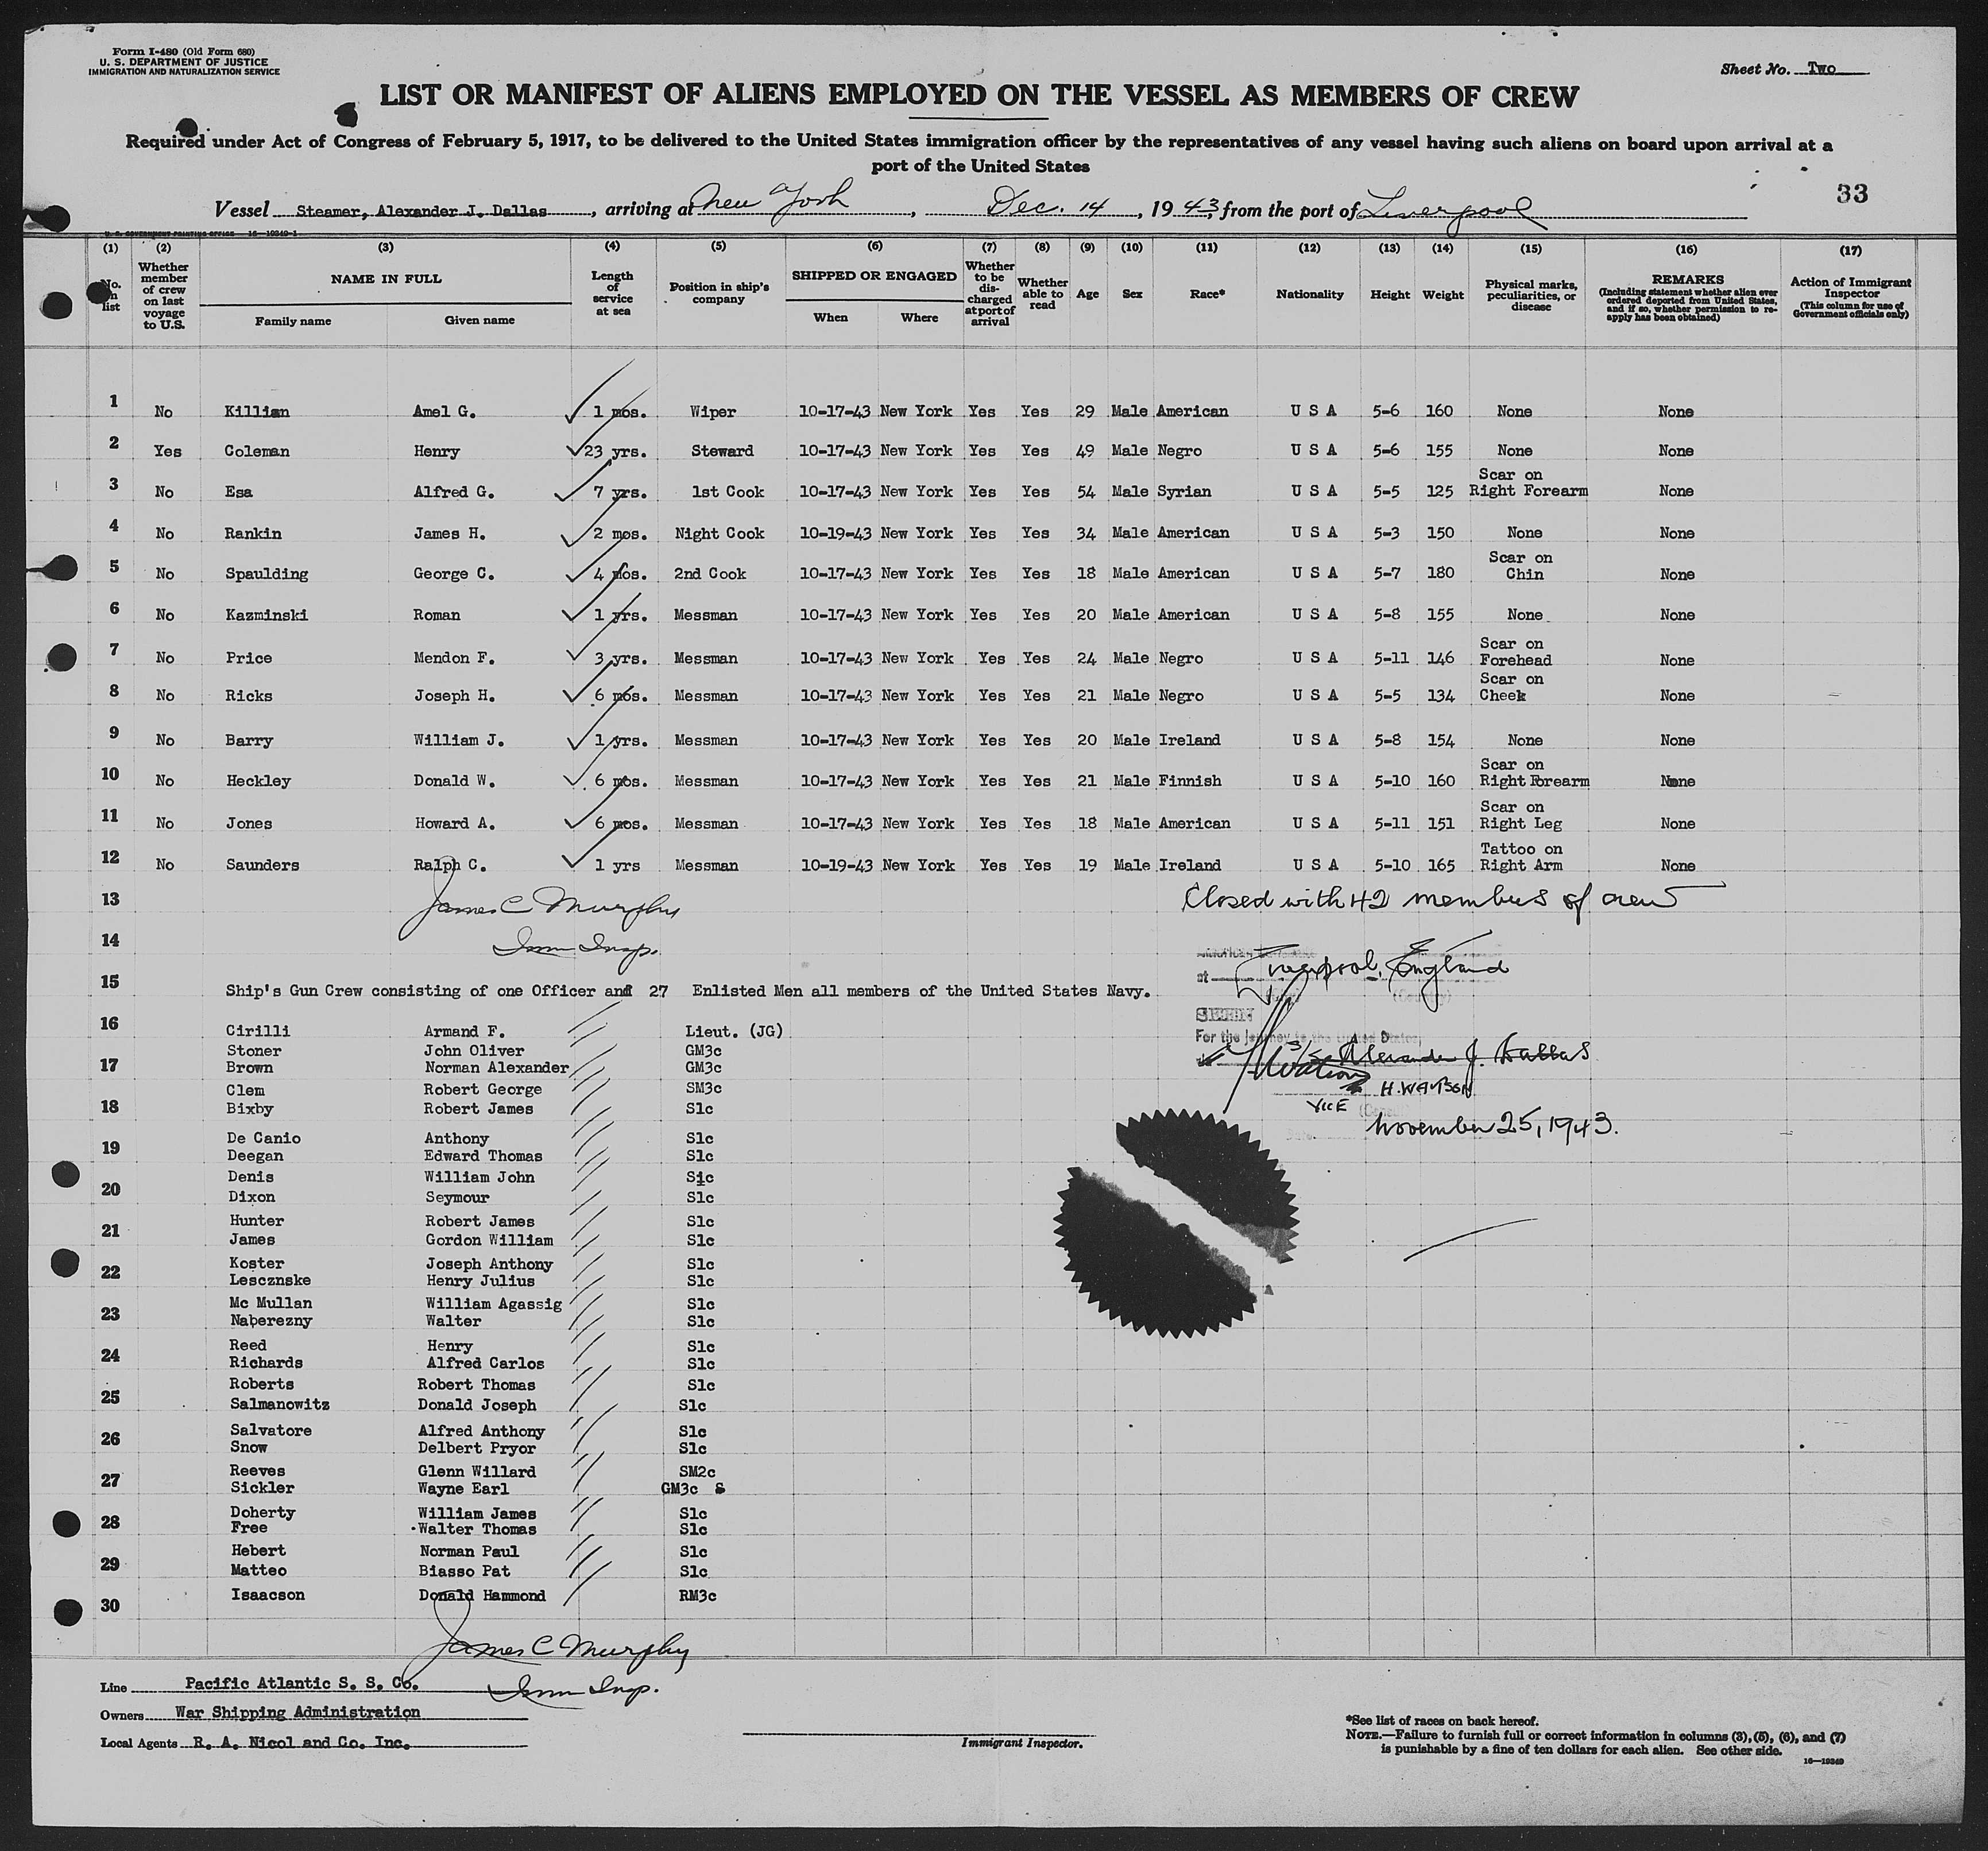 Form I-480 (Old Form 680)
U. S. DEPARTMENT OF JUSTICE
IMMIGRATION AND NATURALIZATION SERVICE
Sheet No. Two
LIST OR MANIFEST OF ALIENS EMPLOYED ON THE VESSEL AS MEMBERS OF CREW
Required under Act of Congress of February 5, 1917, to be delivered to the United States immigration officer by the representatives of any vessel having such aliens on board upon arrival at a
port of the United States
33
Vessel Steamer, Alexander J. Dallas, arriving at New York, Dec. 14, 1943, from the port of Liverpool
U. S. GOVERNMENT PRINTING OFFICE 16—19349-1
(1) (2) (3) (4) (5) (6) (7) (8) (9) (10) (11) (12) (13) (14) (15) (16) (17)
No. on list
Whether member of crew on last voyage to U.S.
NAME IN FULL
Family name Given name
Length of service at sea
Position in ship's company
SHIPPED OR ENGAGED
When Where
Whether to be discharged at port of arrival
Whether able to read
Age
Sex
Race*
Nationality
Height
Weight
Physical marks, peculiarities, or disease
REMARKS
(Including statement whether alien ever ordered deported from United States, and if so, whether permission to re-apply has been obtained)
Action of Immigrant Inspector
(This column for use of Government officials only)
1 No Killian Amel G. 1 mos. Wiper 10-17-43 New York Yes Yes 29 Male American U S A 5-6 160 None None
2 Yes Coleman Henry 23 yrs. Steward 10-17-43 New York Yes Yes 49 Male Negro U S A 5-6 155 None None
3 No Esa Alfred G. 7 yrs. 1st Cook 10-17-43 New York Yes Yes 54 Male Syrian U S A 5-5 125 Scar on Right Forearm None
4 No Rankin James H. 2 mos. Night Cook 10-19-43 New York Yes Yes 34 Male American U S A 5-3 150 None None
5 No Spaulding George C. 4 mos. 2nd Cook 10-17-43 New York Yes Yes 18 Male American U S A 5-7 180 Scar on Chin None
6 No Kazminski Roman 1 yrs. Messman 10-17-43 New York Yes Yes 20 Male American U S A 5-8 155 None None
7 No Price Mendon F. 3 yrs. Messman 10-17-43 New York Yes Yes 24 Male Negro U S A 5-11 146 Scar on Forehead None
8 No Ricks Joseph H. 6 mos. Messman 10-17-43 New York Yes Yes 21 Male Negro U S A 5-5 134 Scar on Cheek None
9 No Barry William J. 1 yrs. Messman 10-17-43 New York Yes Yes 20 Male Ireland U S A 5-8 154 None None
10 No Heckley Donald W. 6 mos. Messman 10-17-43 New York Yes Yes 21 Male Finnish U S A 5-10 160 Scar on Right Forearm None
11 No Jones Howard A. 6 mos. Messman 10-17-43 New York Yes Yes 18 Male American U S A 5-11 151 Scar on Right Leg None
12 No Saunders Ralph C. 1 yrs Messman 10-19-43 New York Yes Yes 19 Male Ireland U S A 5-10 165 Tattoo on Right Arm None
13 James C Murphy Closed with 42 members of crew
14 Imm Insp.
at Liverpool, England
(City) (Country)
15 Ship's Gun Crew consisting of one Officer and 27 Enlisted Men all members of the United States Navy.
SEAMEN
For the journey to the United States,
S/S Alexander J. Dallas
H. WATSON
VICE
November 25, 1943.
16 Cirilli Armand F. Lieut. (JG)
Stoner John Oliver GM3c
17 Brown Norman Alexander GM3c
Clem Robert George SM3c
18 Bixby Robert James S1c
De Canio Anthony S1c
19 Deegan Edward Thomas S1c
Denis William John S1c
20 Dixon Seymour S1c
Hunter Robert James S1c
21 James Gordon William S1c
Koster Joseph Anthony S1c
22 Lescznske Henry Julius S1c
Mc Mullan William Agassig S1c
23 Naberezny Walter S1c
Reed Henry S1c
24 Richards Alfred Carlos S1c
Roberts Robert Thomas S1c
25 Salmanowitz Donald Joseph S1c
Salvatore Alfred Anthony S1c
26 Snow Delbert Pryor S1c
Reeves Glenn Willard SM2c
27 Sickler Wayne Earl GM3c S
Doherty William James S1c
28 Free Walter Thomas S1c
Hebert Norman Paul S1c
29 Matteo Biasso Pat S1c
Isaacson Donald Hammond RM3c
30
James C Murphy
Imm Insp.
Line Pacific Atlantic S. S. Co.
Owners War Shipping Administration
Local Agents R. A. Nicol and Co. Inc.
Immigrant Inspector.
*See list of races on back hereof.
NOTE.—Failure to furnish full or correct information in columns (3), (5), (6), and (7)
is punishable by a fine of ten dollars for each alien. See other side.
16—19349